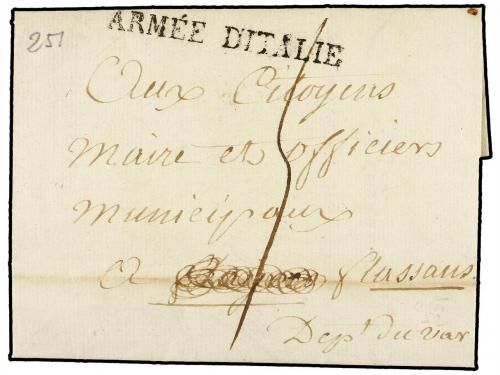 251
ARMÉE D'ITALIE
Aux Citoyens
Maire et officiers
municipaux
a flassans
Dept du var